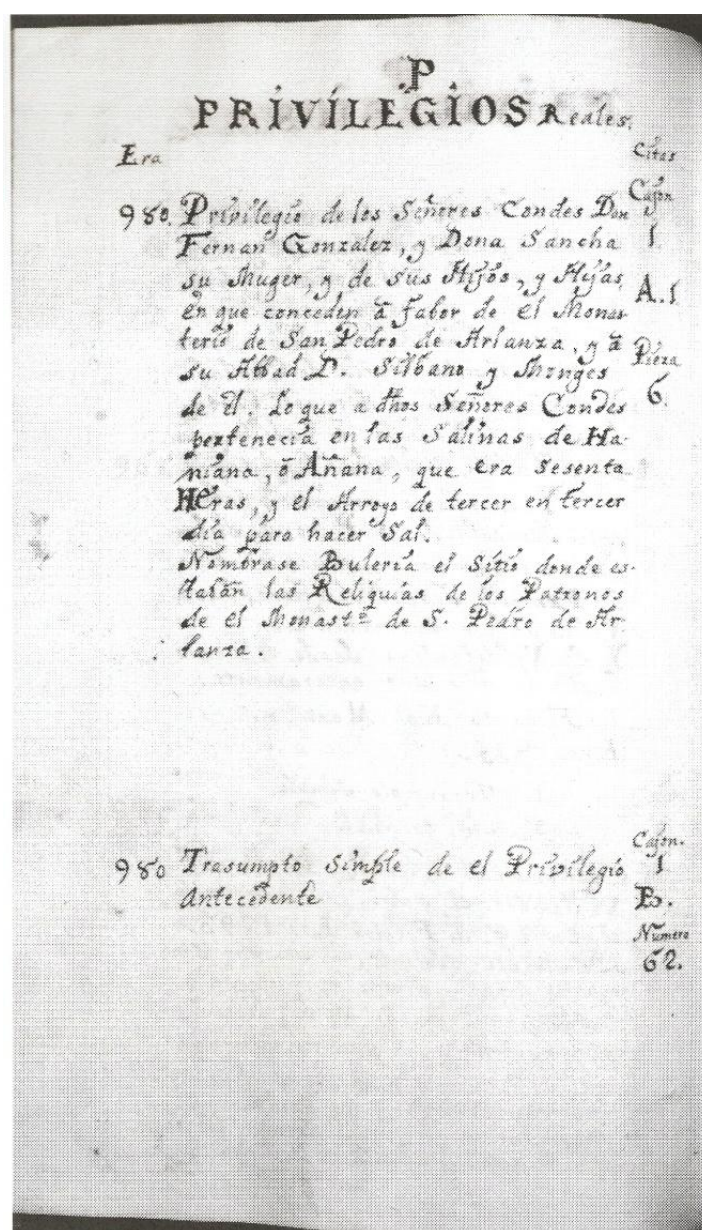 .P.
PRIVILEGIOS Reales.
Era
Citas
980. Privilegio de los Señores Condes Don
Fernan Gonzalez, y Dona Sancha
su Muger, y de sus Hijos, y Hijas,
en que conceden â fabor de el Monas
terio de San Pedro de Arlanza, y â
su Abbad D. Silbano y Monges
de êl. Lo que a dhos Señores Condes
pertenecia en las Salinas de Ha-
niana, ô Añana, que era sesenta
Heras, y el Arroyo de tercer en tercer
dia para hacer Sal.
Nombrase Buleria el Sitio donde es-
taban las Reliquias de los Patronos
de el Monastº de S. Pedro de Ar-
lanza.
Cajon
1.
A.1
Pieza
6.
980 Trasumpto Simple de el Privilegio
Antecedente
Cajon.
1
B.
Numero
62.